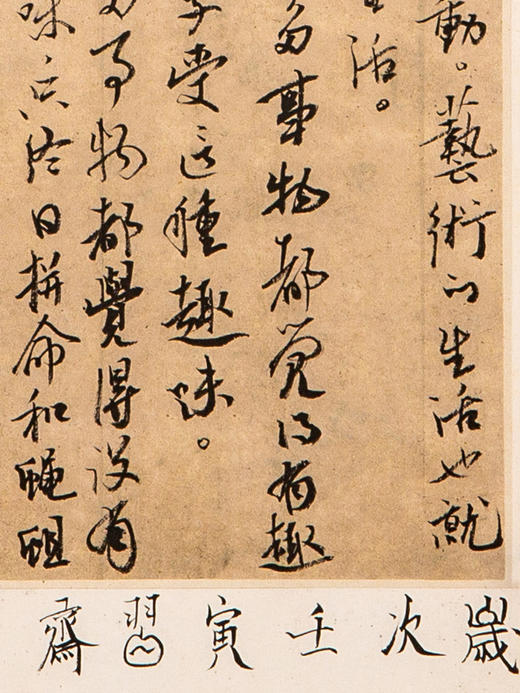 動。藝術的生活也就
活。
多事物都觉得有趣
受這種趣味。
事物都覺得没有
味只終日拼命和蠅蛆
歲次壬寅習齋